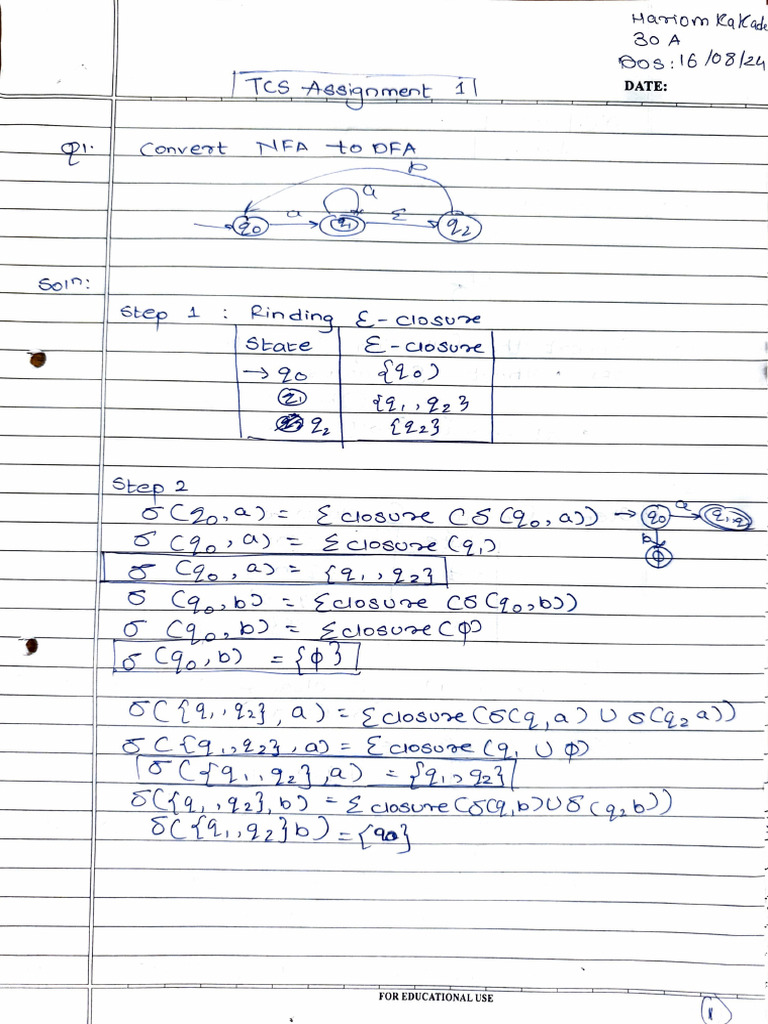 Hariom Kakade
30 A
DOS: 16/08/24
DATE:
TCS Assignment 1
Q1. Convert NFA to DFA
b
a
a ε
q0 q1 q2
Soln:
Step 1 : Rinding ε-closure
State ε-closure
→ q0 {q0}
q1 {q1, q2}
q2 {q2}
Step 2
σ(q0, a) = εclosure (δ(q0, a)) → q0 a q1, q2
σ (q0, a) = εclosure(q1) b
σ (q0, a) = {q1, q2} ϕ
σ (q0, b) = εclosure (δ(q0, b))
σ (q0, b) = εclosure(ϕ)
σ (q0, b) = {ϕ}
σ({q1, q2}, a) = εclosure(δ(q1, a) ∪ δ(q2 a))
σ({q1, q2}, a) = εclosure (q1 ∪ ϕ)
σ({q1, q2}, a) = {q1, q2}
δ({q1, q2}, b) = εclosure(δ(q1, b) ∪ δ(q2 b))
δ({q1, q2} b) = {q0}
FOR EDUCATIONAL USE
1